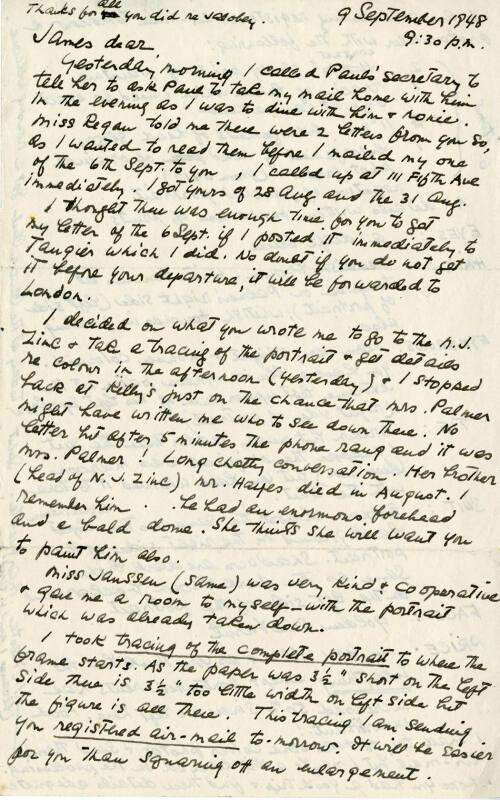 Thanks for all you did re Jacobey.
9 September 1948
9:30 p.m.
James dear
Yesterday morning I called Paul's secretary to
tell her to ask Paul to take my mail home with him
in the evening as I was to dine with him & Roxie.
Miss Regan told me there were 2 letters from you so,
as I wanted to read them before I mailed my one
of the 6th Sept. to you, I called up at 111 Fifth Ave
immediately. I got yours of 28 Aug and the 31 Aug.
I thought there was enough time for you to get
my letter of the 6 Sept. if I posted it immediately to
Tangier which I did. No doubt if you do not get
it before your departure, it will be forwarded to
London.
I decided on what you wrote me to go to the N.J.
Zinc & take a tracing of the portrait & get details
re colour in the afternoon (yesterday) & I stopped
back at Kelly's just on the chance that Mrs. Palmer
might have written me who to see down there. No
letter but after 5 minutes the phone rang and it was
Mrs. Palmer! Long chatty conversation. Her brother
(head of N.J. Zinc) Mr. Hayes died in August. I
remember him. he had an enormous forehead
and a bald dome. She thinks she will want you
to paint him also.
Miss Janssen (same) was very kind & cooperative
& gave me a room to myself - with the portrait
which was already taken down.
I took tracing of the complete portrait to where the
frame starts. As the paper was 3½" short on the left
side there is 3½" too little width on left side but
the figure is all there. This tracing I am sending
you registered air-mail to-morrow. It will be easier
for you than squaring off an enlargement.